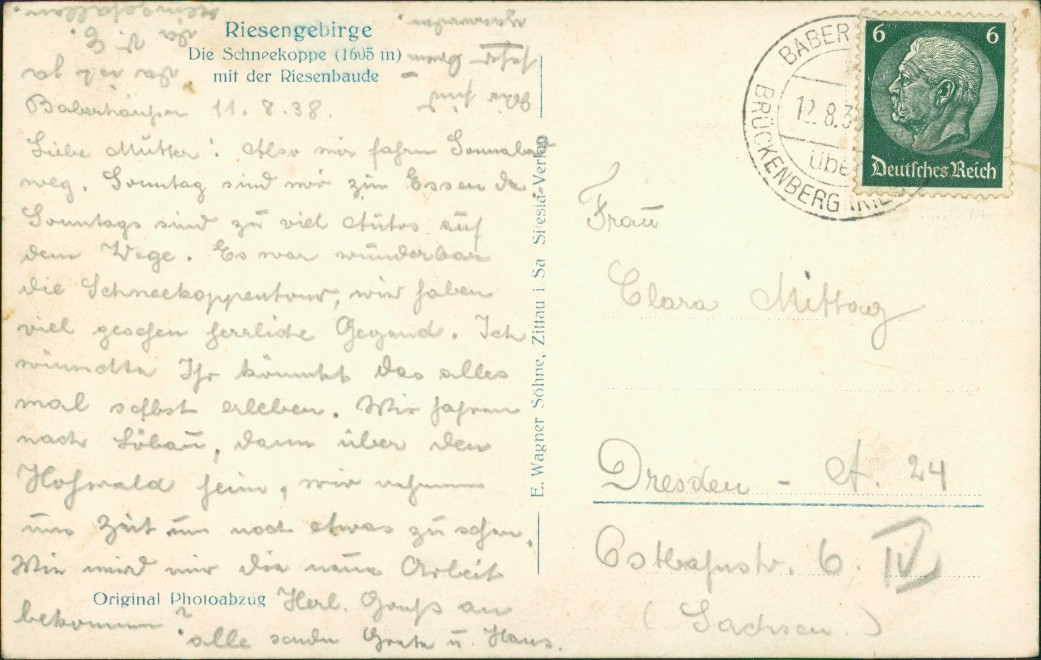 Riesengebirge
Die Schneekoppe (1605 m)
mit der Riesenbaude
Baberhäuser 11. 8. 38.
Liebe Mutter! Also wir fahren Sonnabend
weg. Sonntag sind wir zum Essen da
Sonntags sind zu viel Autos auf
dem Wege. Es war wunderbar
die Schneekoppentour, wir haben
viel gesehen herrliche Gegend. Ich
wünschte Ihr könntet das alles
mal selbst erleben. Wir fahren
nach Löbau, dann über den
Hohwald heim, wir nehmen
uns Zeit um noch etwas zu sehen.
Wie wird mir die neue Arbeit
bekommen?
Herl. Gruß an
alle senden Grete u. Hans.
Original Photoabzug
E. Wagner Söhne, Zittau i. Sa Silesia-Verlag
BABER
BRÜCKENBERG (RIES
12.8.38
übe
6 6
Deutsches Reich
Frau
Clara Mittag
Dresden - A. 24
Ostbahnstr. 6. IV
(Sachsen.)